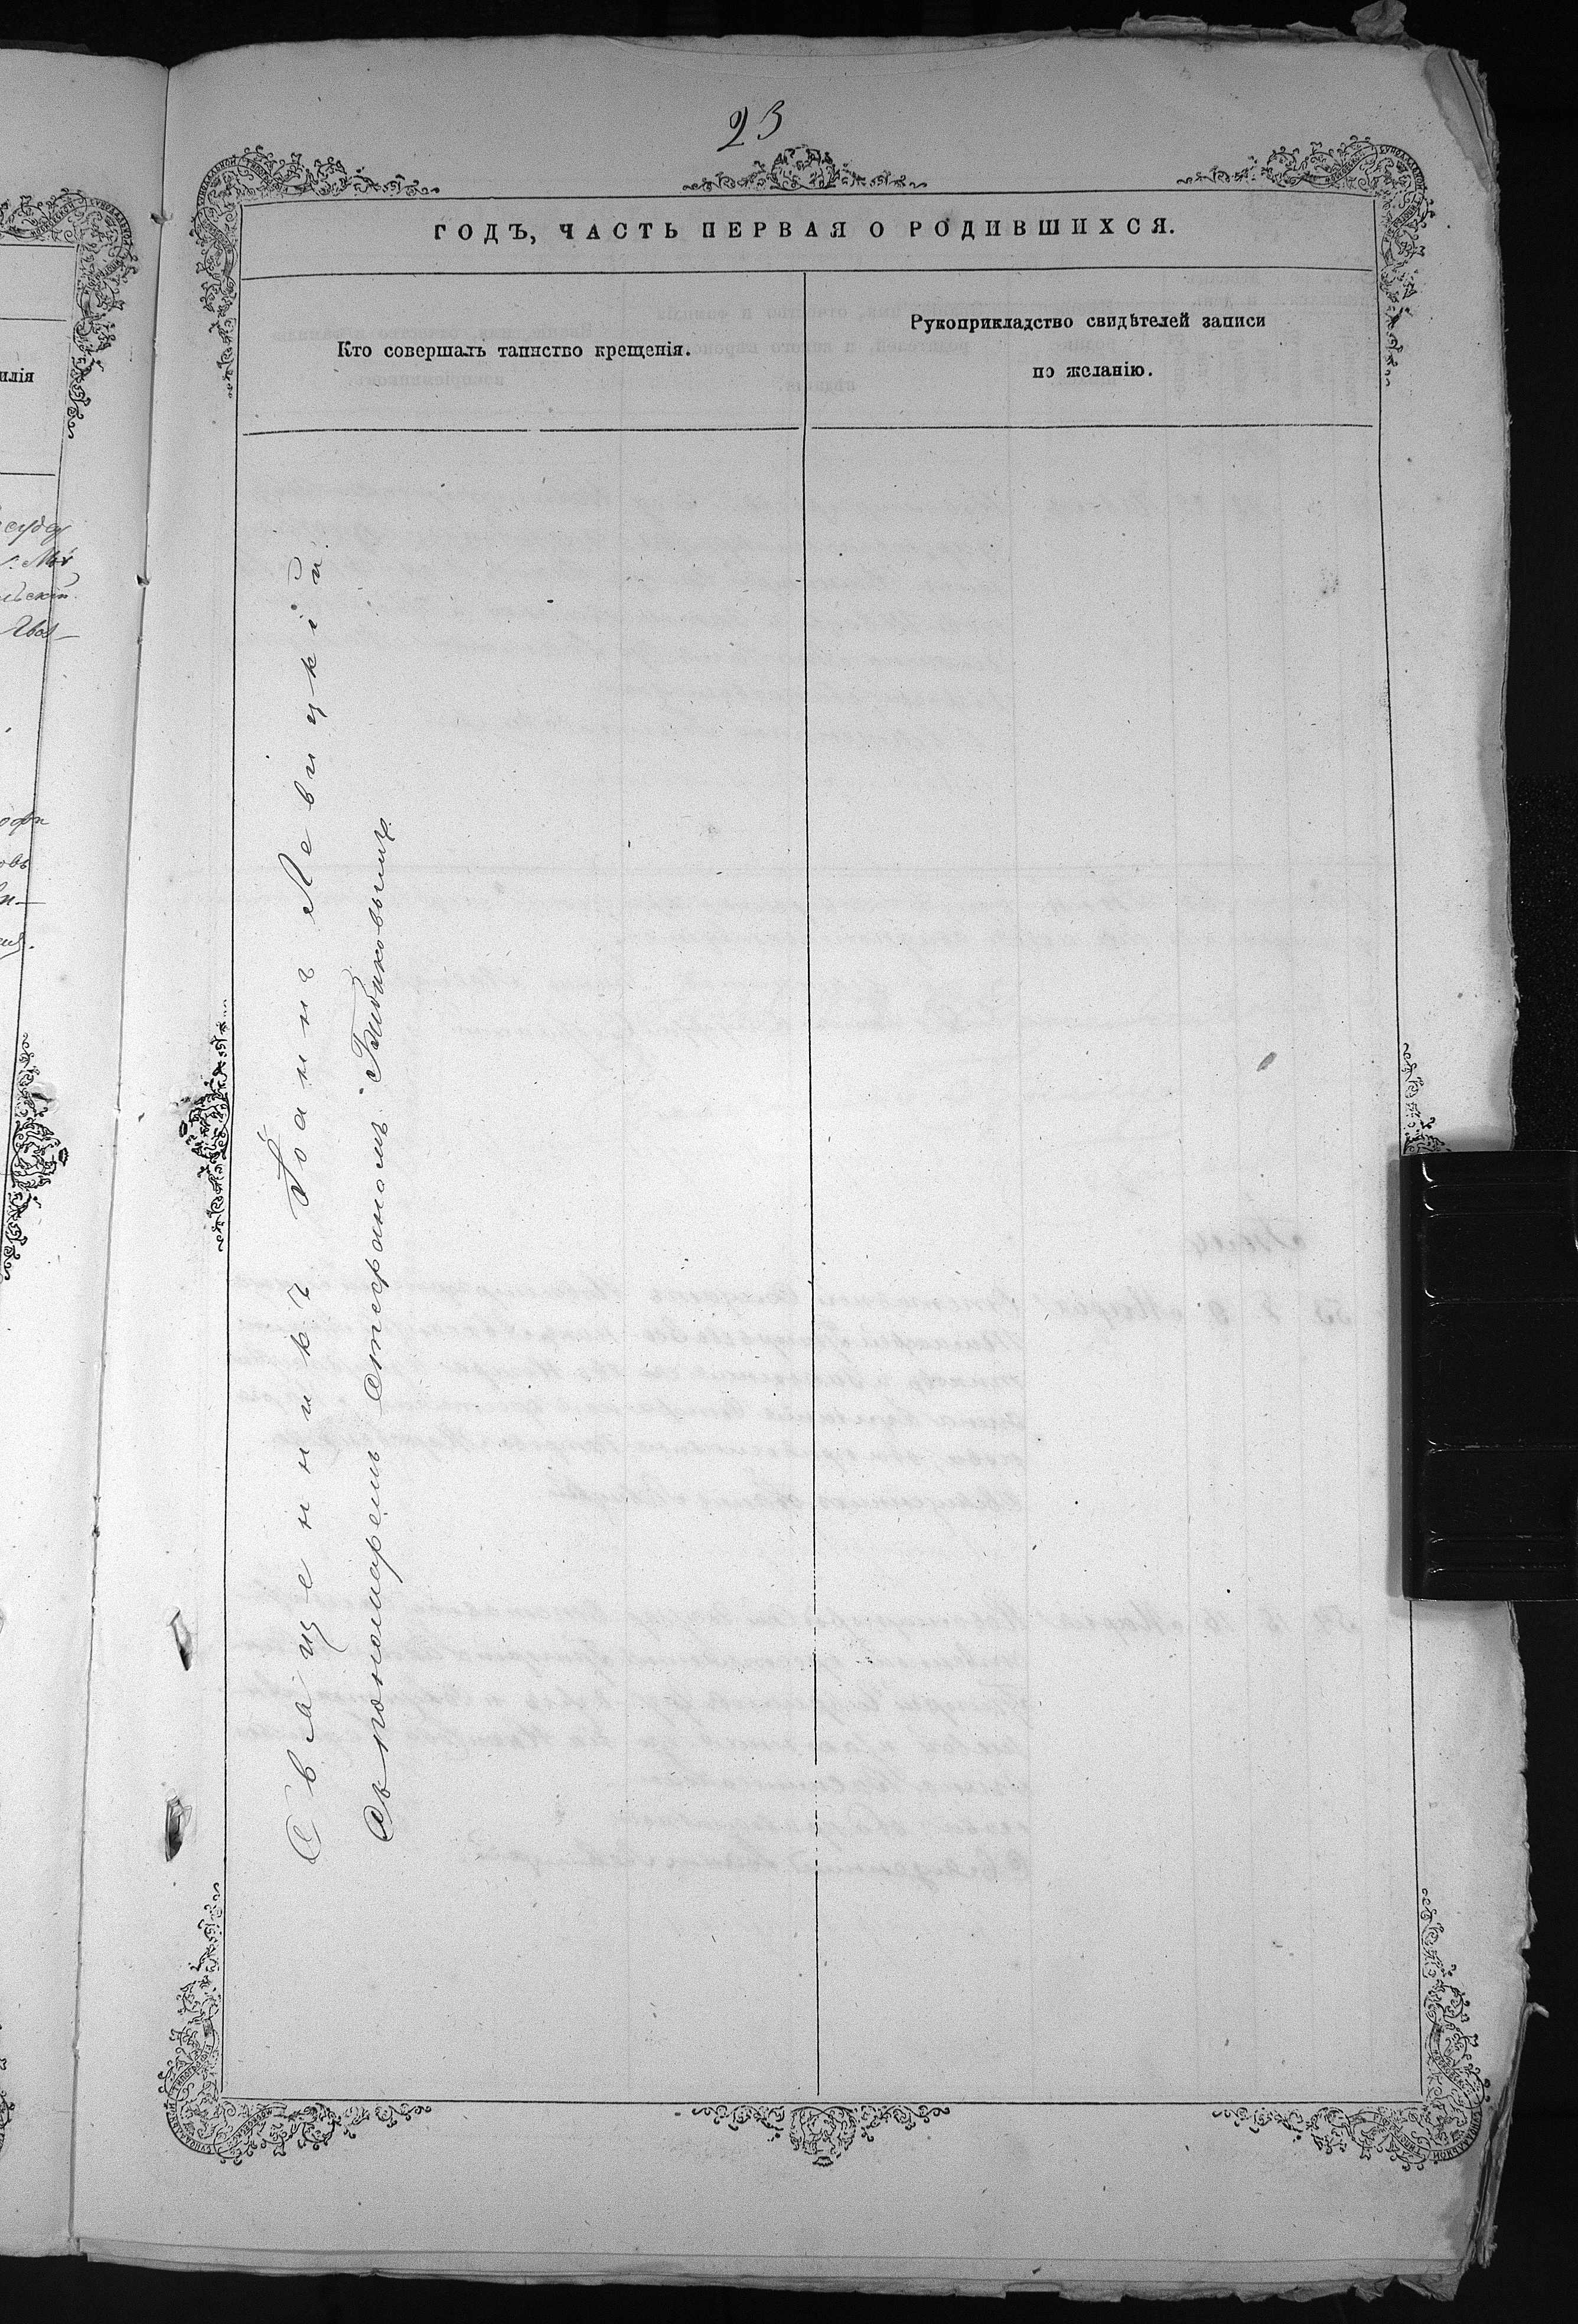 23
ГОДЪ, ЧАСТЬ ПЕРВАЯ О РОДИВШИХСЯ.
Кто совершалъ таинство крещенія.
Рукоприкладство свидѣтелей записи
по желанію.
Священникъ Іоаннъ Левицкій
Съ пономаремъ Стефаномъ
илія